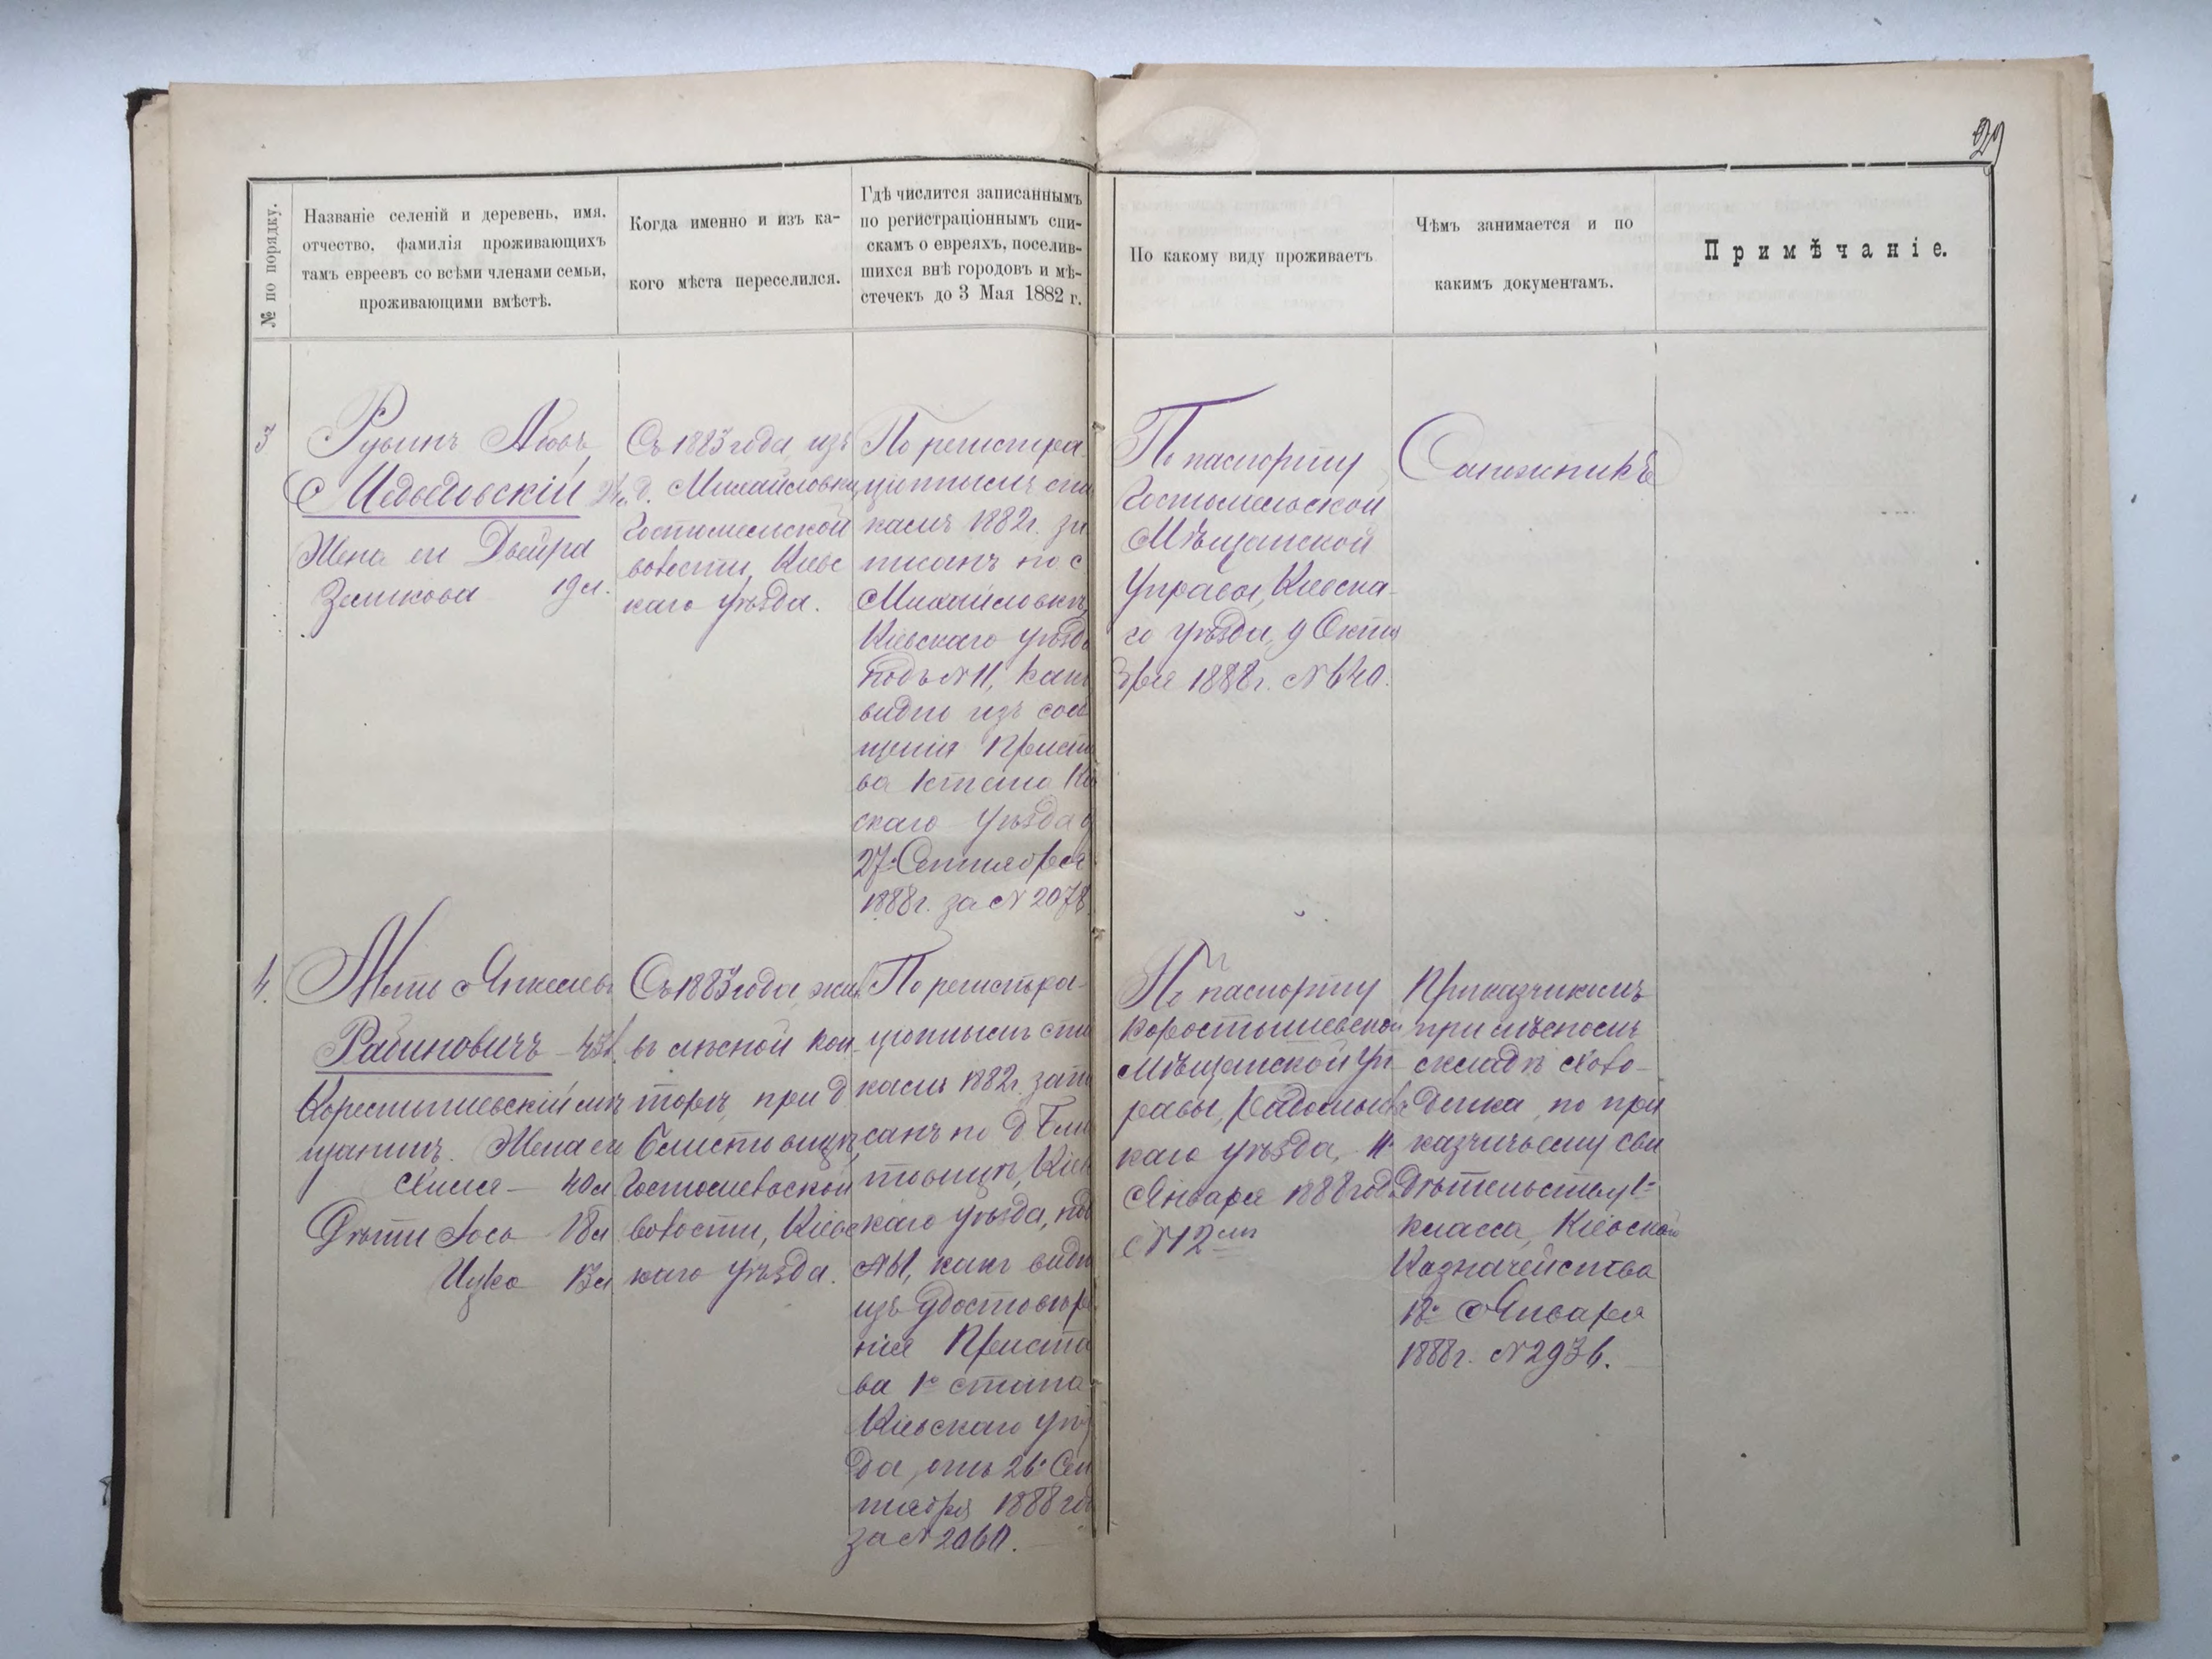 29
№ по порядку.
Названіе селеній и деревень, имя,
отчество, фамилія проживающихъ
тамъ евреевъ со всѣми членами семьи,
проживающими вмѣстѣ.
Когда именно и изъ ка-
кого мѣста переселился.
Гдѣ числится записаннымъ
по регистраціоннымъ спи-
скамъ о евреяхъ, поселив-
шихся внѣ городовъ и мѣ-
стечекъ до 3 Мая 1882 г.
По какому виду проживаетъ
Чѣмъ занимается и по
какимъ документамъ.
Примѣчаніе.
3
Рувинъ
Медведовскій
Жена ею Двейра
Зеликова 19 л.
Съ 1883 года, изъ
д. Михайловки
Гостомельской
волости, Кіевс
каго уѣзда.
По регистра
ціоннымъ спи
камъ 1882 г. за
писанъ по с
Михайловкѣ,
Кіевскаго уѣзда
подъ N 11, какъ
видно изъ сооб
щенія Приста
ва 1 стана Кіе
скаго уѣзда
27 Сентября
1888 г. за N 2078
По паспорту
Гостомельской
Мѣщанской
Управы, Кіевска-
го уѣзда, 9 Октя
бря 1888 г. N 640.
Сапожникъ
4.
Янкелевъ
Рабиновичъ - 45 л.
Коростышевскій мѣ
щанинъ. Жена ею
40 л
Дѣти Іось 18 л
Ицко 13 л
Съ 1883 года, жив
въ лѣсной кон
торѣ, при д
Блиставицѣ,
Гостомельской
волости, Кіевс
каго уѣзда.
По регистра-
ціоннымъ спи
камъ 1882 г. запи
санъ по д. Бли
ставицѣ, Кіев
каго уѣзда, под
N 61, какъ видно
изъ удостовѣре
нія Приста
ва 1го стана
Кіевскаго уѣз
да, отъ 26 Сен
тября 1888 го
за N 2060.
По паспорту
Коростышевской
Мѣщанской Уп
равы, Радомысль
каго уѣзда, 11
Января 1888 год
N 12
Приказчикомъ
при лѣсномъ
складѣ Слобо-
денка, по при
казчичьему сви
дѣтельству 1
класса, Кіевскаго
Казначейства
18 Января
1888 г. N 2936.